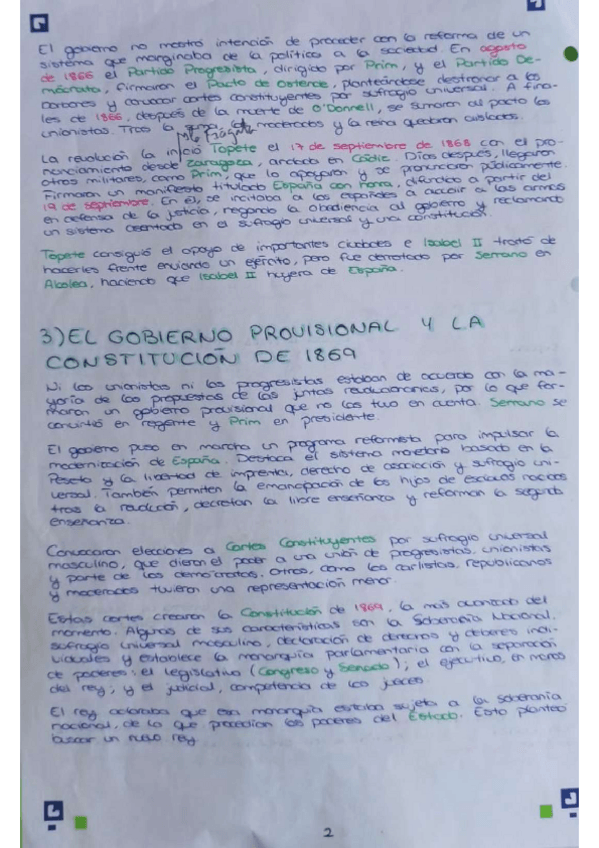 El gobierno no mostró intención de proceder con la reforma de un
sistema que marginaba de la política a la sociedad. En agosto
de 1866 el Partido Progresista, dirigido por Prim, y el Partido De-
mócrata, firmaron el Pacto de Ostende, planteándose destronar a los
Borbones y convocar cortes constituyentes por sufragio universal. A fina-
les de 1866, después de la muerte de O'Donnell, se sumaron al pacto los
unionistas. Tras la moderados y la reina quedaron aislados.
La revolución la inició Topete el 17 de septiembre de 1868 con el pro-
nunciamiento desde Zaragoza, anclado en Cádiz. Días después, llegaron
otros militares, como Prim, que lo apoyaron y se pronunciaron públicamente.
Firmaron un manifiesto titulado España con honra, difundido a partir del
19 de septiembre. En él, se incitaba a los españoles a acudir a las armas
en defensa de la justicia, negando la obediencia al gobierno y reclamando
un sistema asentado en el sufragio universal y una constitución.
Topete consiguió el apoyo de importantes ciudades e Isabel II trató de
hacerles frente enviando un ejército, pero fue derrotado por Serrano en
Alcolea, haciendo que Isabel II huyera de España.
3) EL GOBIERNO PROVISIONAL Y LA
CONSTITUCIÓN DE 1869
Ni los unionistas ni los progresistas estaban de acuerdo con la ma-
yoría de las propuestas de las juntas revolucionarias, por lo que for-
maron un gobierno provisional que no las tuvo en cuenta. Serrano se
convirtió en regente y Prim en presidente.
El gobierno puso en marcha un programa reformista para impulsar la
modernización de España. Destaca el sistema monetario basado en la
Peseta y la libertad de imprenta, derecho de asociación y sufragio uni-
versal. También permiten la emancipación de los hijos de esclavos nacidos
tras la revolución, decretan la libre enseñanza y reforman la segunda
enseñanza.
Convocaron elecciones a Cortes Constituyentes por sufragio universal
masculino, que dieron el poder a una unión de progresistas, unionistas
y parte de los demócratas. Otros, como los carlistas, republicanos
y moderados tuvieron una representación menor.
Estas cortes crearon la Constitución de 1869, la más avanzada del
momento. Algunas de sus características son la Soberanía Nacional,
sufragio universal masculino, declaración de derechos y deberes indi-
viduales y establece la monarquía parlamentaria con la separación
de poderes: el legislativo (Congreso y Senado); el ejecutivo, en manos
del rey; y el judicial, competencia de los jueces.
El rey aclaraba que esa monarquía estaba sujeta a la soberanía
nacional, de la que procedían los poderes del Estado. Esto planteó
buscar un nuevo rey.
2